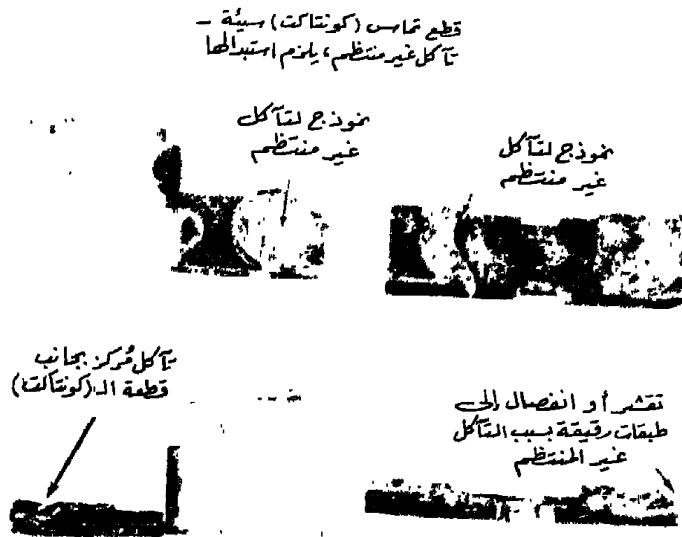 قطع تماس (كونتاكت) سيئة –
تآكل غير منتظم، يلزم استبدالها
نموذج لتآكل
غير منتظم
نموذج لتآكل
غير منتظم
تآكل مُركز بجانب
قطعة الـ (كونتاكت)
تقشر أو انفصال إلى
طبقات رقيقة بسبب التآكل
غير المنتظم